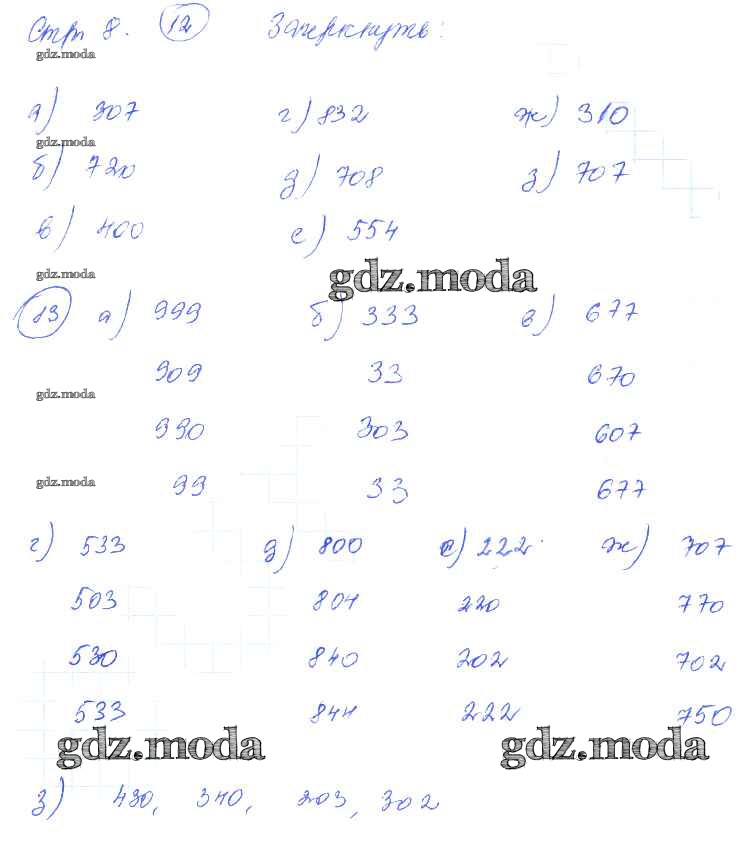 Стр 8. 12 Зачеркнуть:
gdz.moda
а) 307 г) 832 ж) 310
gdz.moda
б) 720 д) 708 з) 707
в) 400 е) 554
gdz.moda gdz.moda
13 а) 999 б) 333 в) 677
909 33 670
gdz.moda
990 303 607
gdz.moda 99 33 677
г) 533 д) 800 е) 222 ж) 707
503 804 220 770
530 840 202 702
533 844 222 750
gdz.moda gdz.moda
з) 430, 340, 203, 302